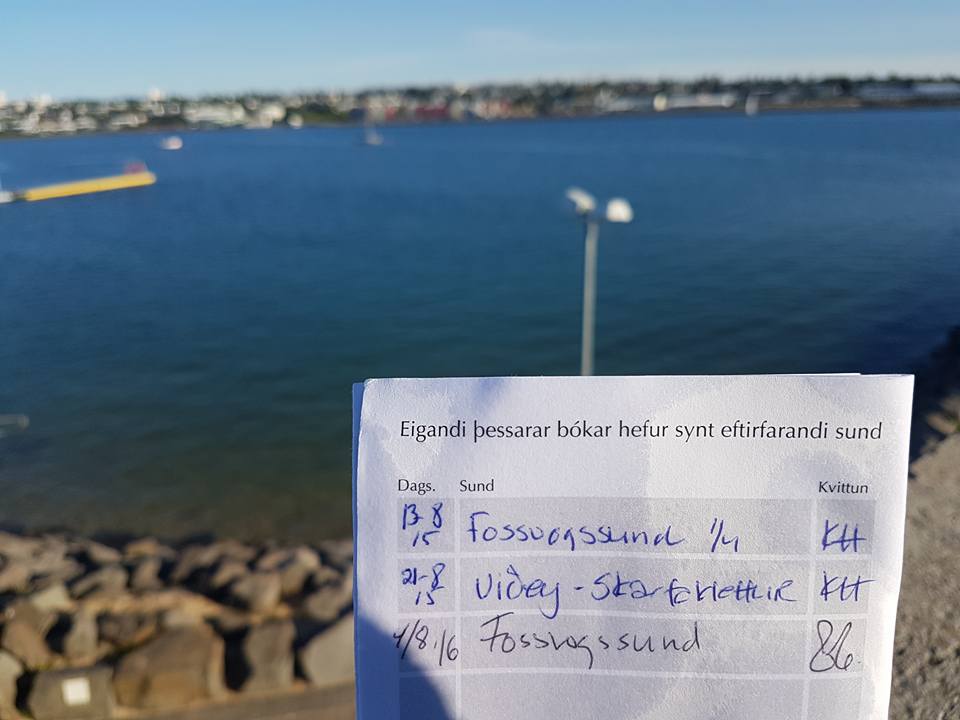 Eigandi þessarar bókar hefur synt eftirfarandi sund
Dags. Sund Kvittun
13-8 15 Fossvogssund 1/4 KH
21-8 15 Viðey - Skarfaklettur KH
4/8.16 Fossvogssund